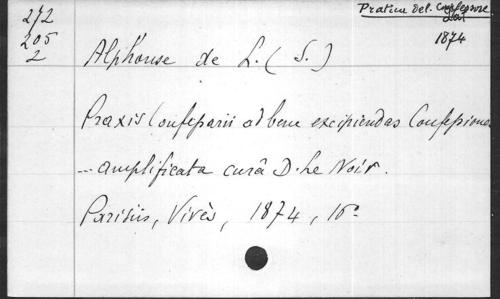 272
205
2
Pratica del Confessore
Lat
1874
Alphonse de L. (S.)
Praxis Confessarii ad bene excipiendas Confessiones
... amplificata curâ D. Le Noir.
Parisiis, Vivès, 1874, 16º